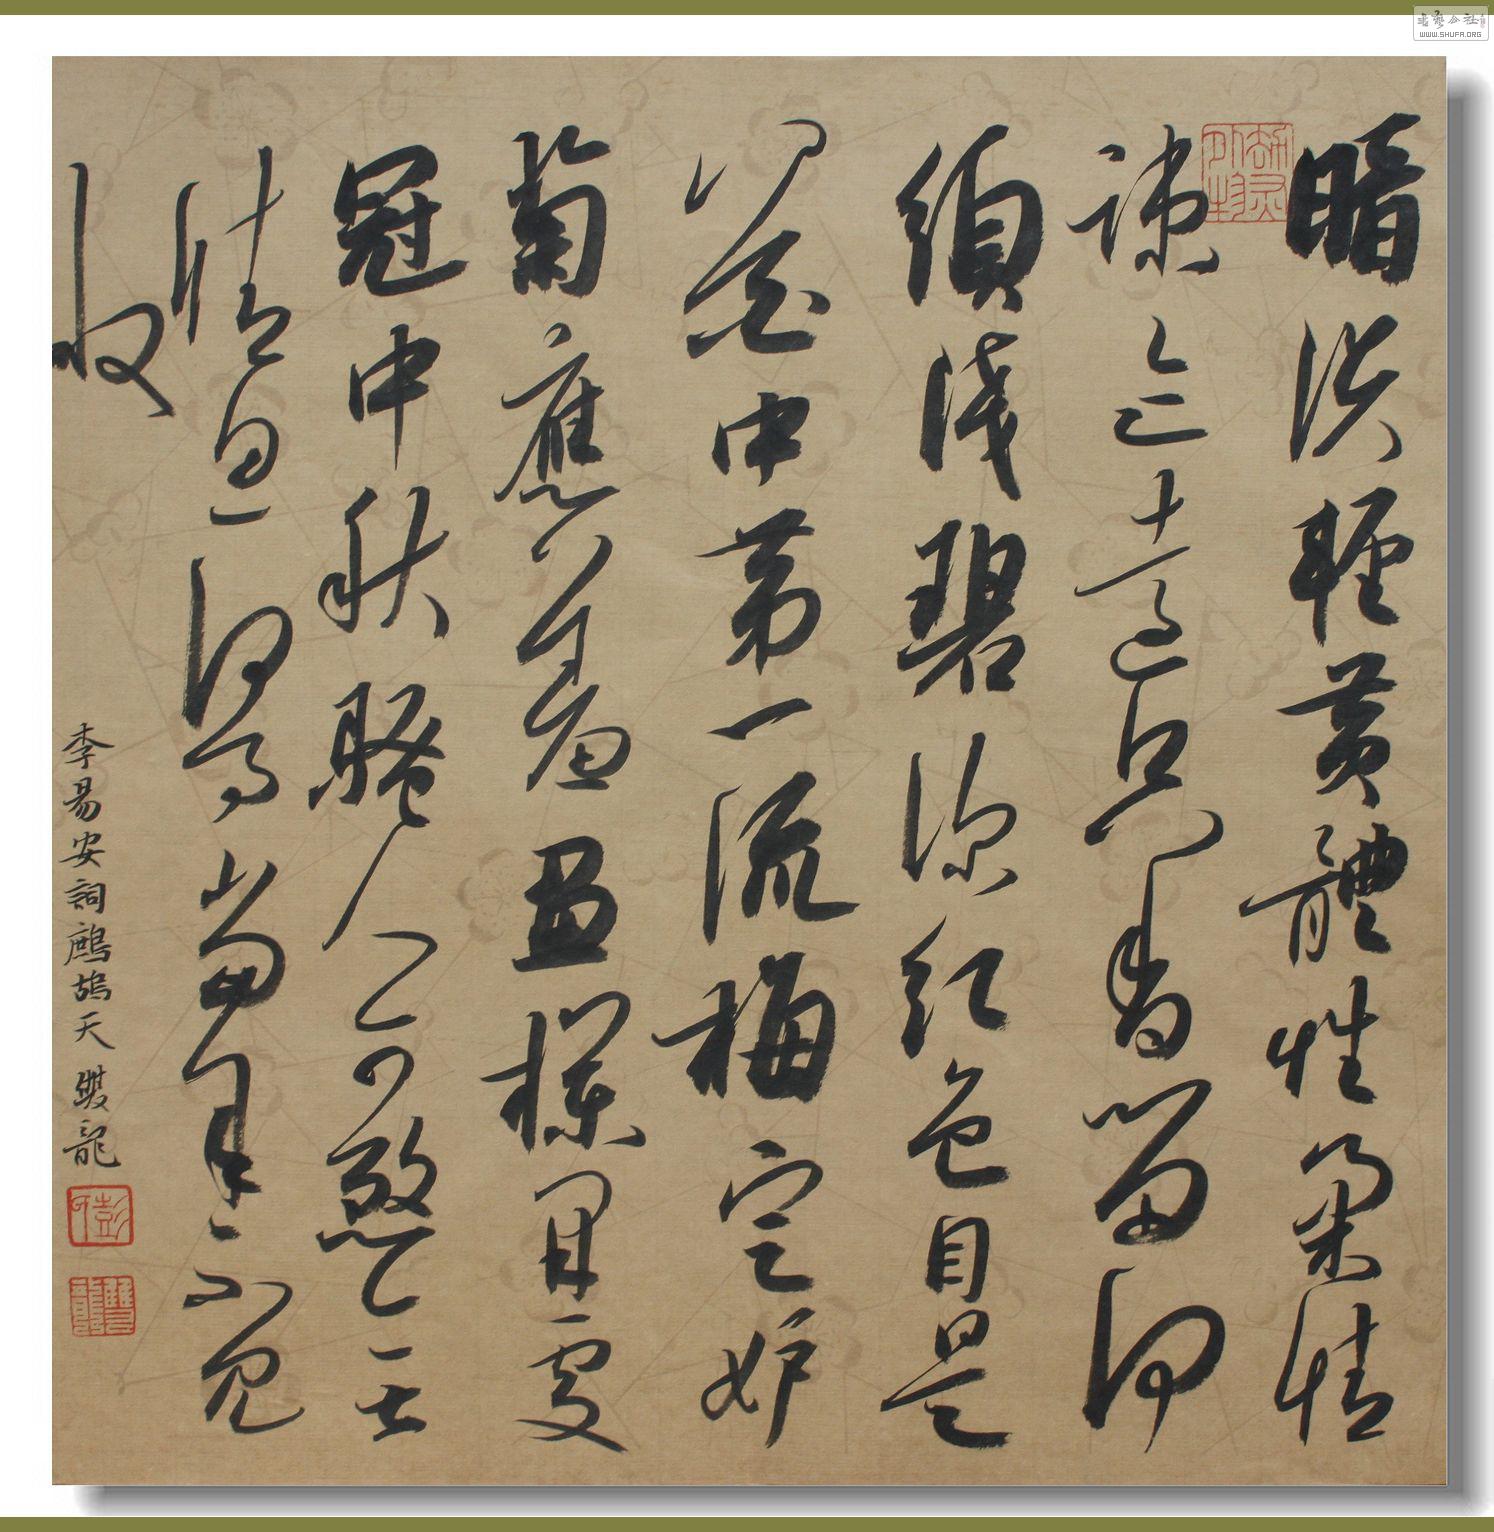 暗淡輕黃體性柔情
疎迹遠只香留何
須淺碧深紅色自是
花中第一流梅定妒
菊應羞畫欄開處
冠中秋騷人可煞無
情思何事當年不見
收
李易安詞鷓鴣天 雙龍
彭印
雙龍
書藝公社
WWW.SHUFA.ORG